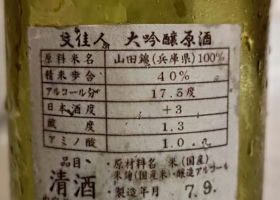 文佳人 大吟醸原酒
原料米名 山田錦(兵庫県)100%
精米歩合 40%
アルコール分 17.5度
日本酒度 +3
酸度 1.3
アミノ酸 1.0
品目 ・原材料名 米(国産)
清酒 米麹(国産米)・醸造アルコール
・製造年月 7.9.